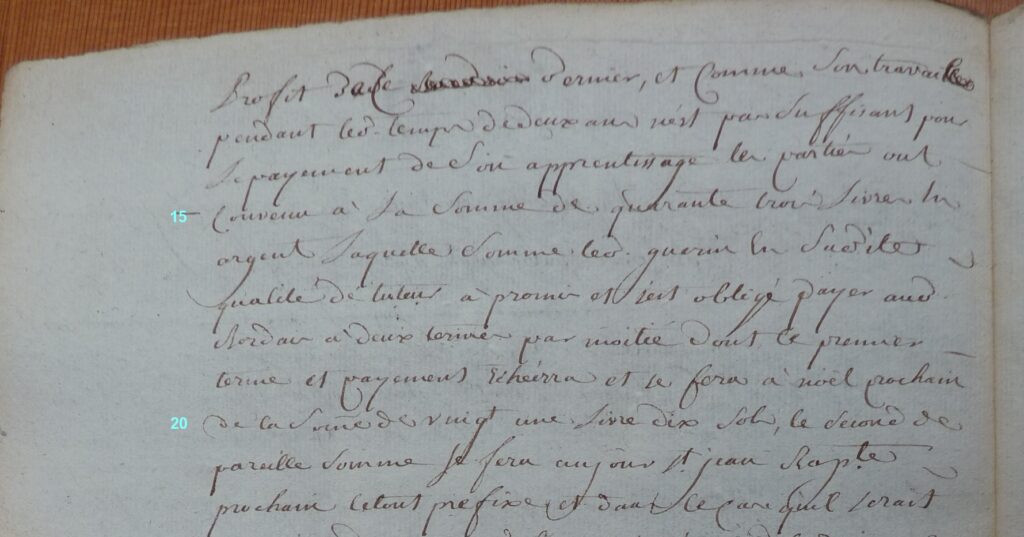 Profit dudt dernier, et Comme Son travail
pendant led. temps de deux ans n'est pas Suffisant pour
le payement de Son apprentissage les partiés ont
15 Convenu à la Somme de quarante trois livres En
argent laquelle Somme led. guerin En Sadite
qualité de tuteur à promis et s'est obligé payer aud.
Rordau à deux termes par moitié dont le premier
terme et payement Echéérra et se fera à noël prochain
20 de la Some de vingt une livre dix Sols, le Second de
pareille Somme se fera au jour st. jean Bapte
prochain le tout préfixé et dans le Cas qu'il serait